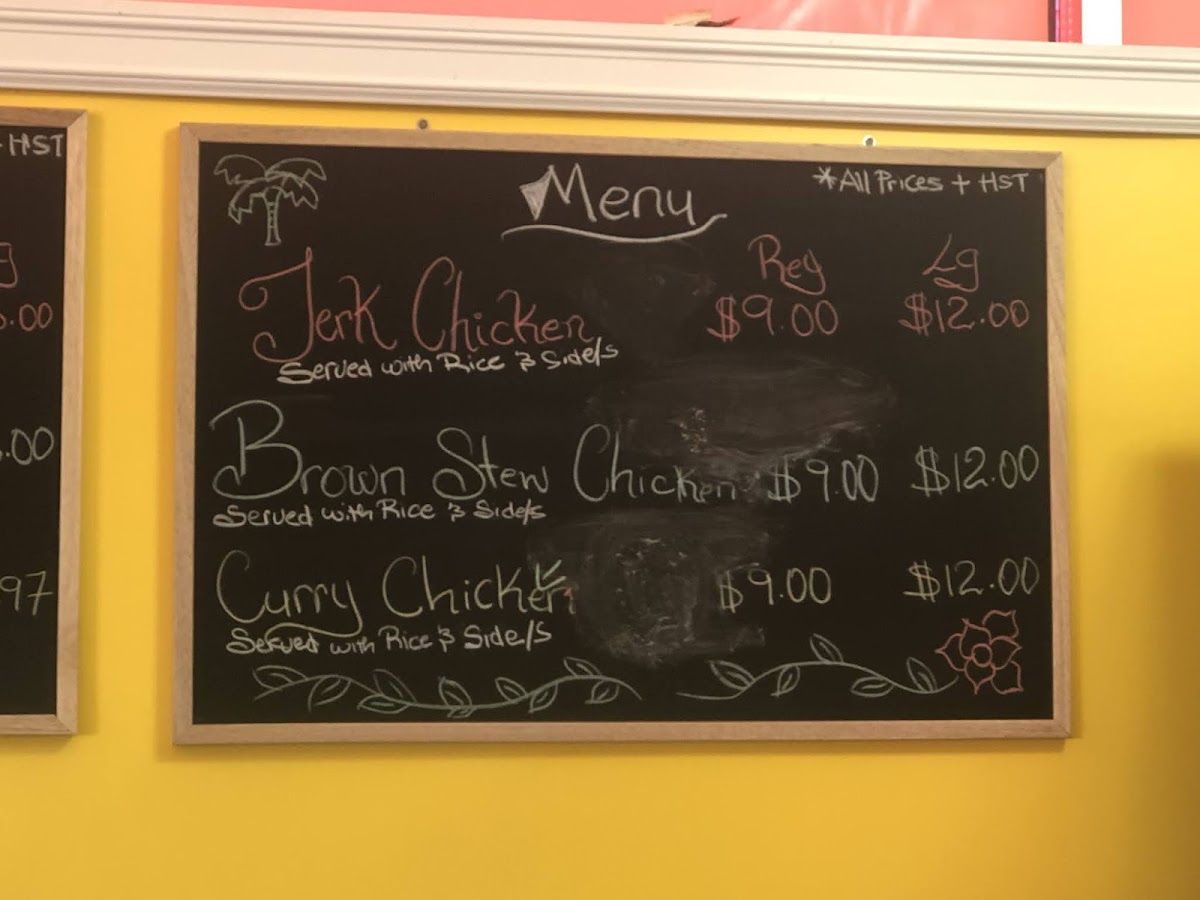 HST
.00
.00
97
Menu
*All Prices + HST
Reg Lg
Jerk Chicken $9.00 $12.00
Served with Rice & Side/s
Brown Stew Chicken $9.00 $12.00
Served with Rice & Side/s
Curry Chicken $9.00 $12.00
Served with Rice & Side/s